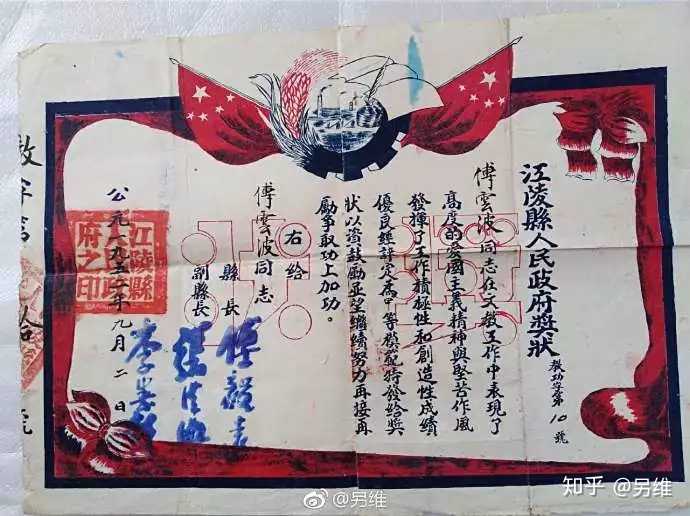 江陵縣人民政府獎狀
教功字第10號
傅雲波同志在文教工作中表現了
高度的爱國主義精神與堅苦作風
發揮了工作積極性和創造性成績
優良經評定為甲等模範特發給獎
狀以資鼓勵並望繼續努力再接再
勵爭取功上加功。
右給
傅雲波同志
縣長
副縣長
傅毅
公元一九五二年九月二日
江陵縣
府之印
字第 拾 號
@另维
知乎 @另维